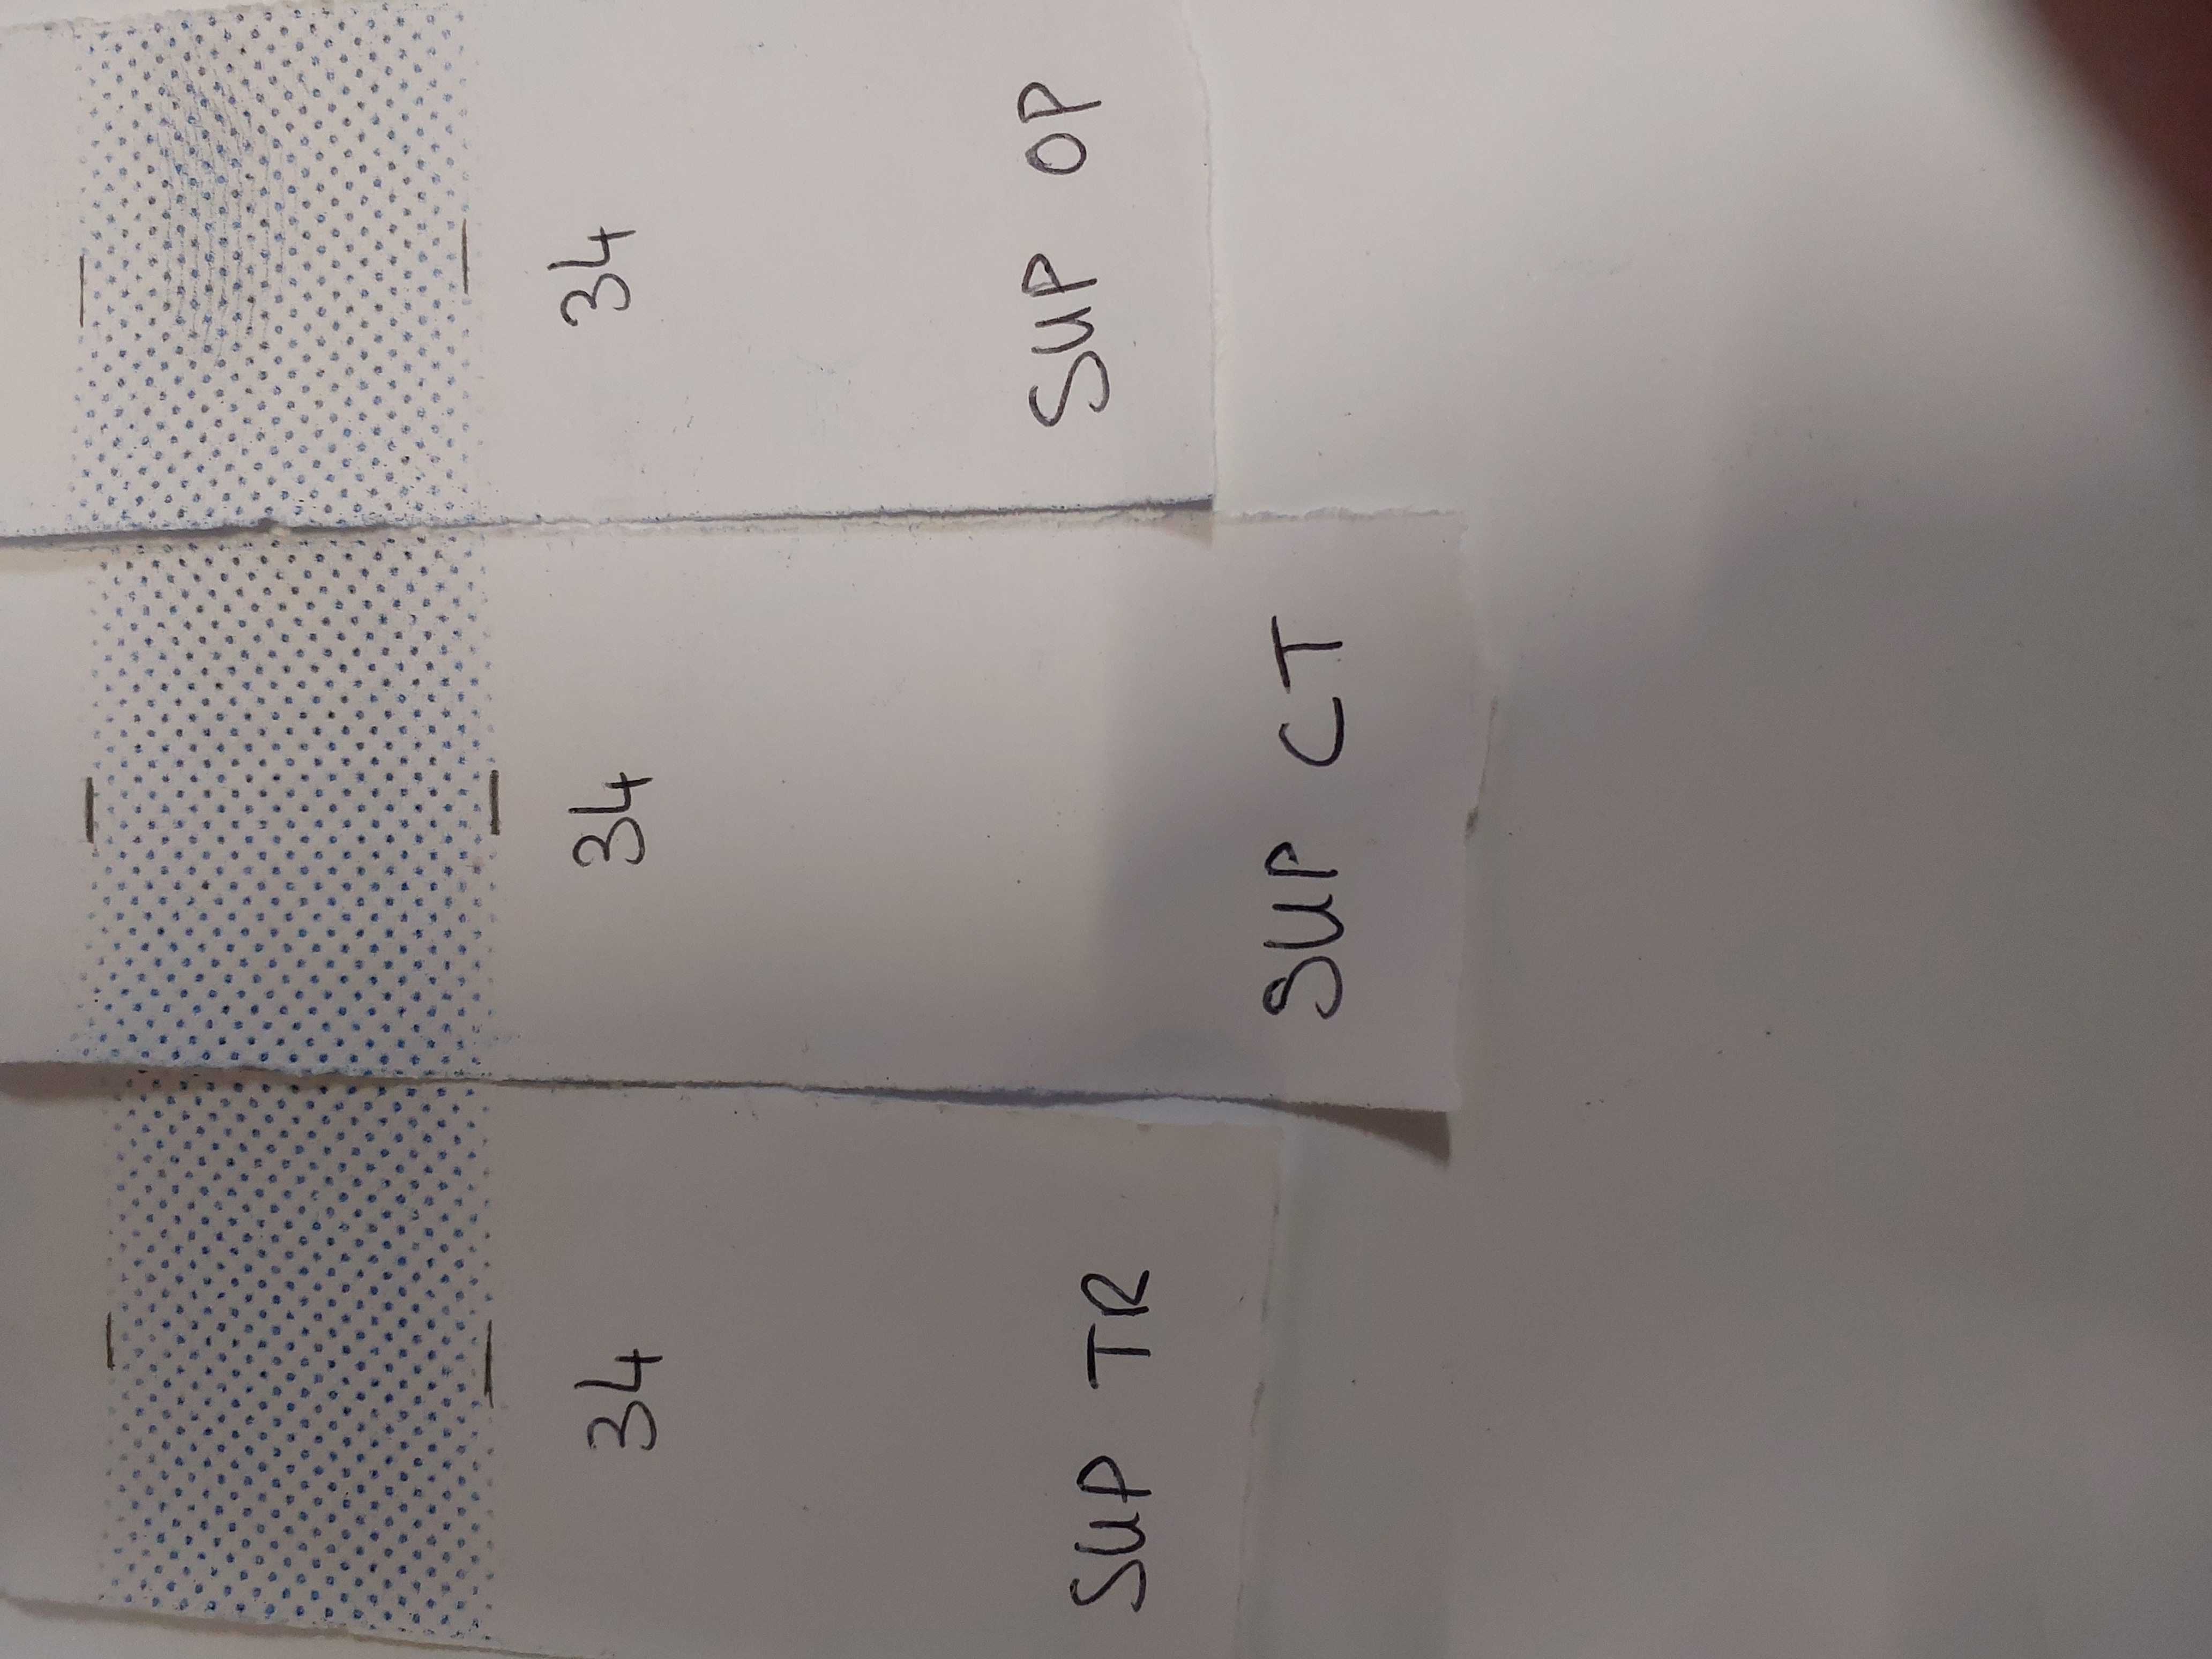 34
SUP TR
34
SUP CT
34
SUP OP